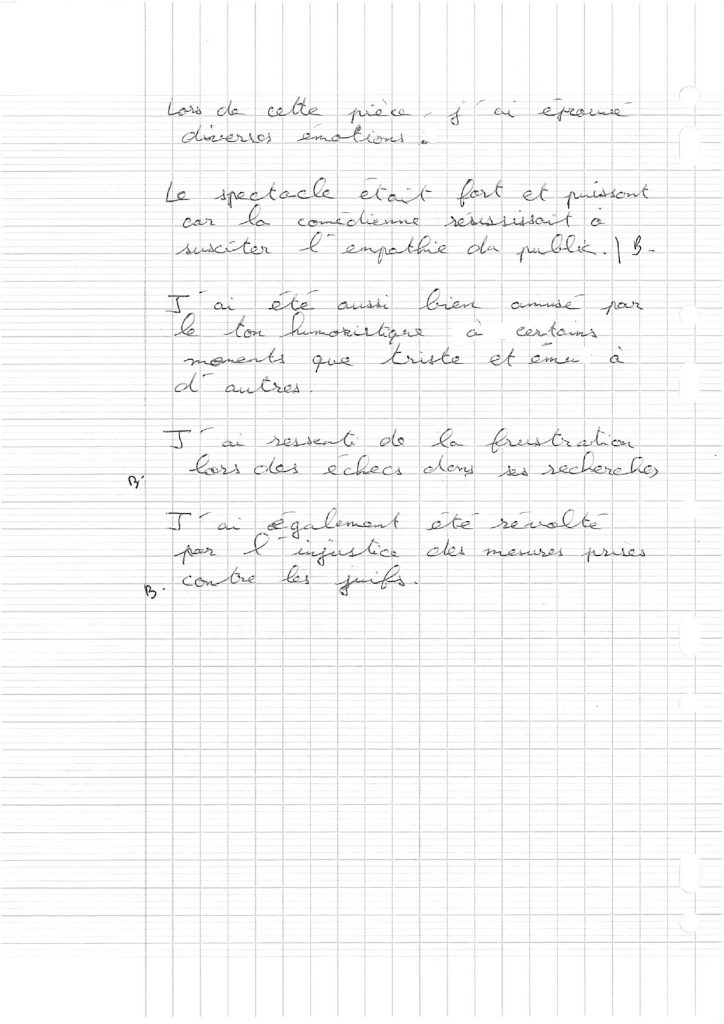 Lors de cette pièce, j'ai éprouvé
diverses émotions.
Le spectacle était fort et puissant
car la comédienne réussissait à
susciter l'empathie du public. | B.
J'ai été aussi bien amusé par
le ton humoristique à certains
moments que triste et ému à
d'autres.
J'ai ressenti de la frustration
B. lors des échecs dans ses recherches
J'ai également été révolté
par l'injustice des mesures prises
B. contre les juifs.